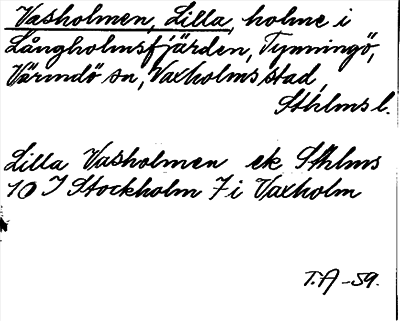 Vasholmen, Lilla, holme i
Långholmsfjärden, Tynningö,
Värmdö sn, Vaxholms stad,
Sthlms l.
Lilla Vasholmen ek Sthlms
10 I Stockholm 7 i Vaxholm
T.A -59.